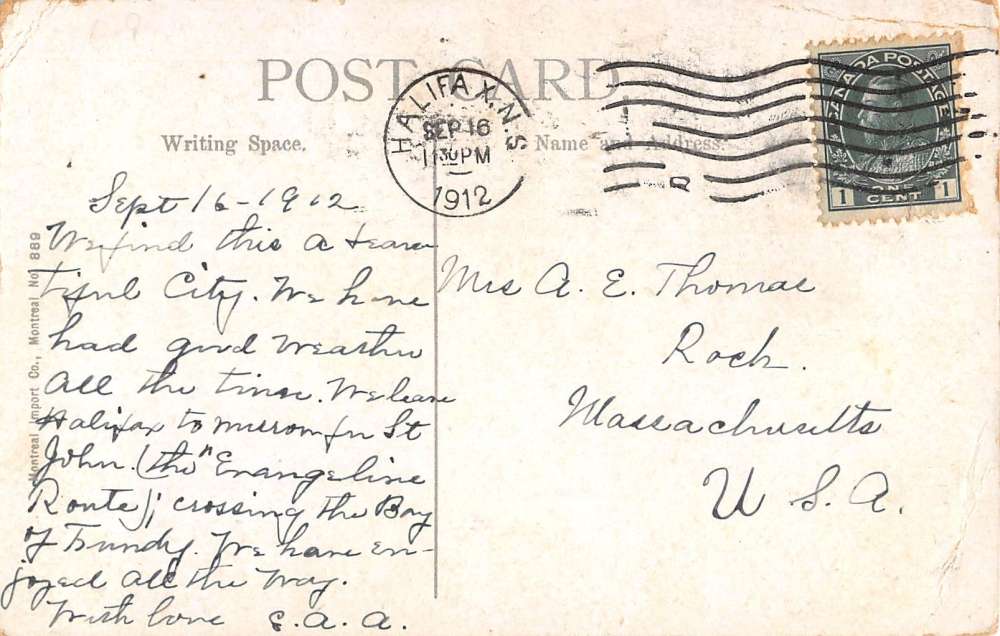 POST CARD
Writing Space.
Name and Address.
HALIFAX, N.S.
SEP 16
1130 PM
1912
CANADA POSTAGE
1 ONE CENT 1
Montreal Import Co., Montreal No. 889
Sept 16 - 1912
We find this a beau-
tiful City. We have
had good weather
all the time. We leave
Halifax to morrow for St
John. (the "Evangeline
Route); crossing the Bay
of Fundy. We have en-
joyed all the way.
With love E. A. A.
Mrs A. E. Thomas
Rock.
Massachusetts
U S. A.